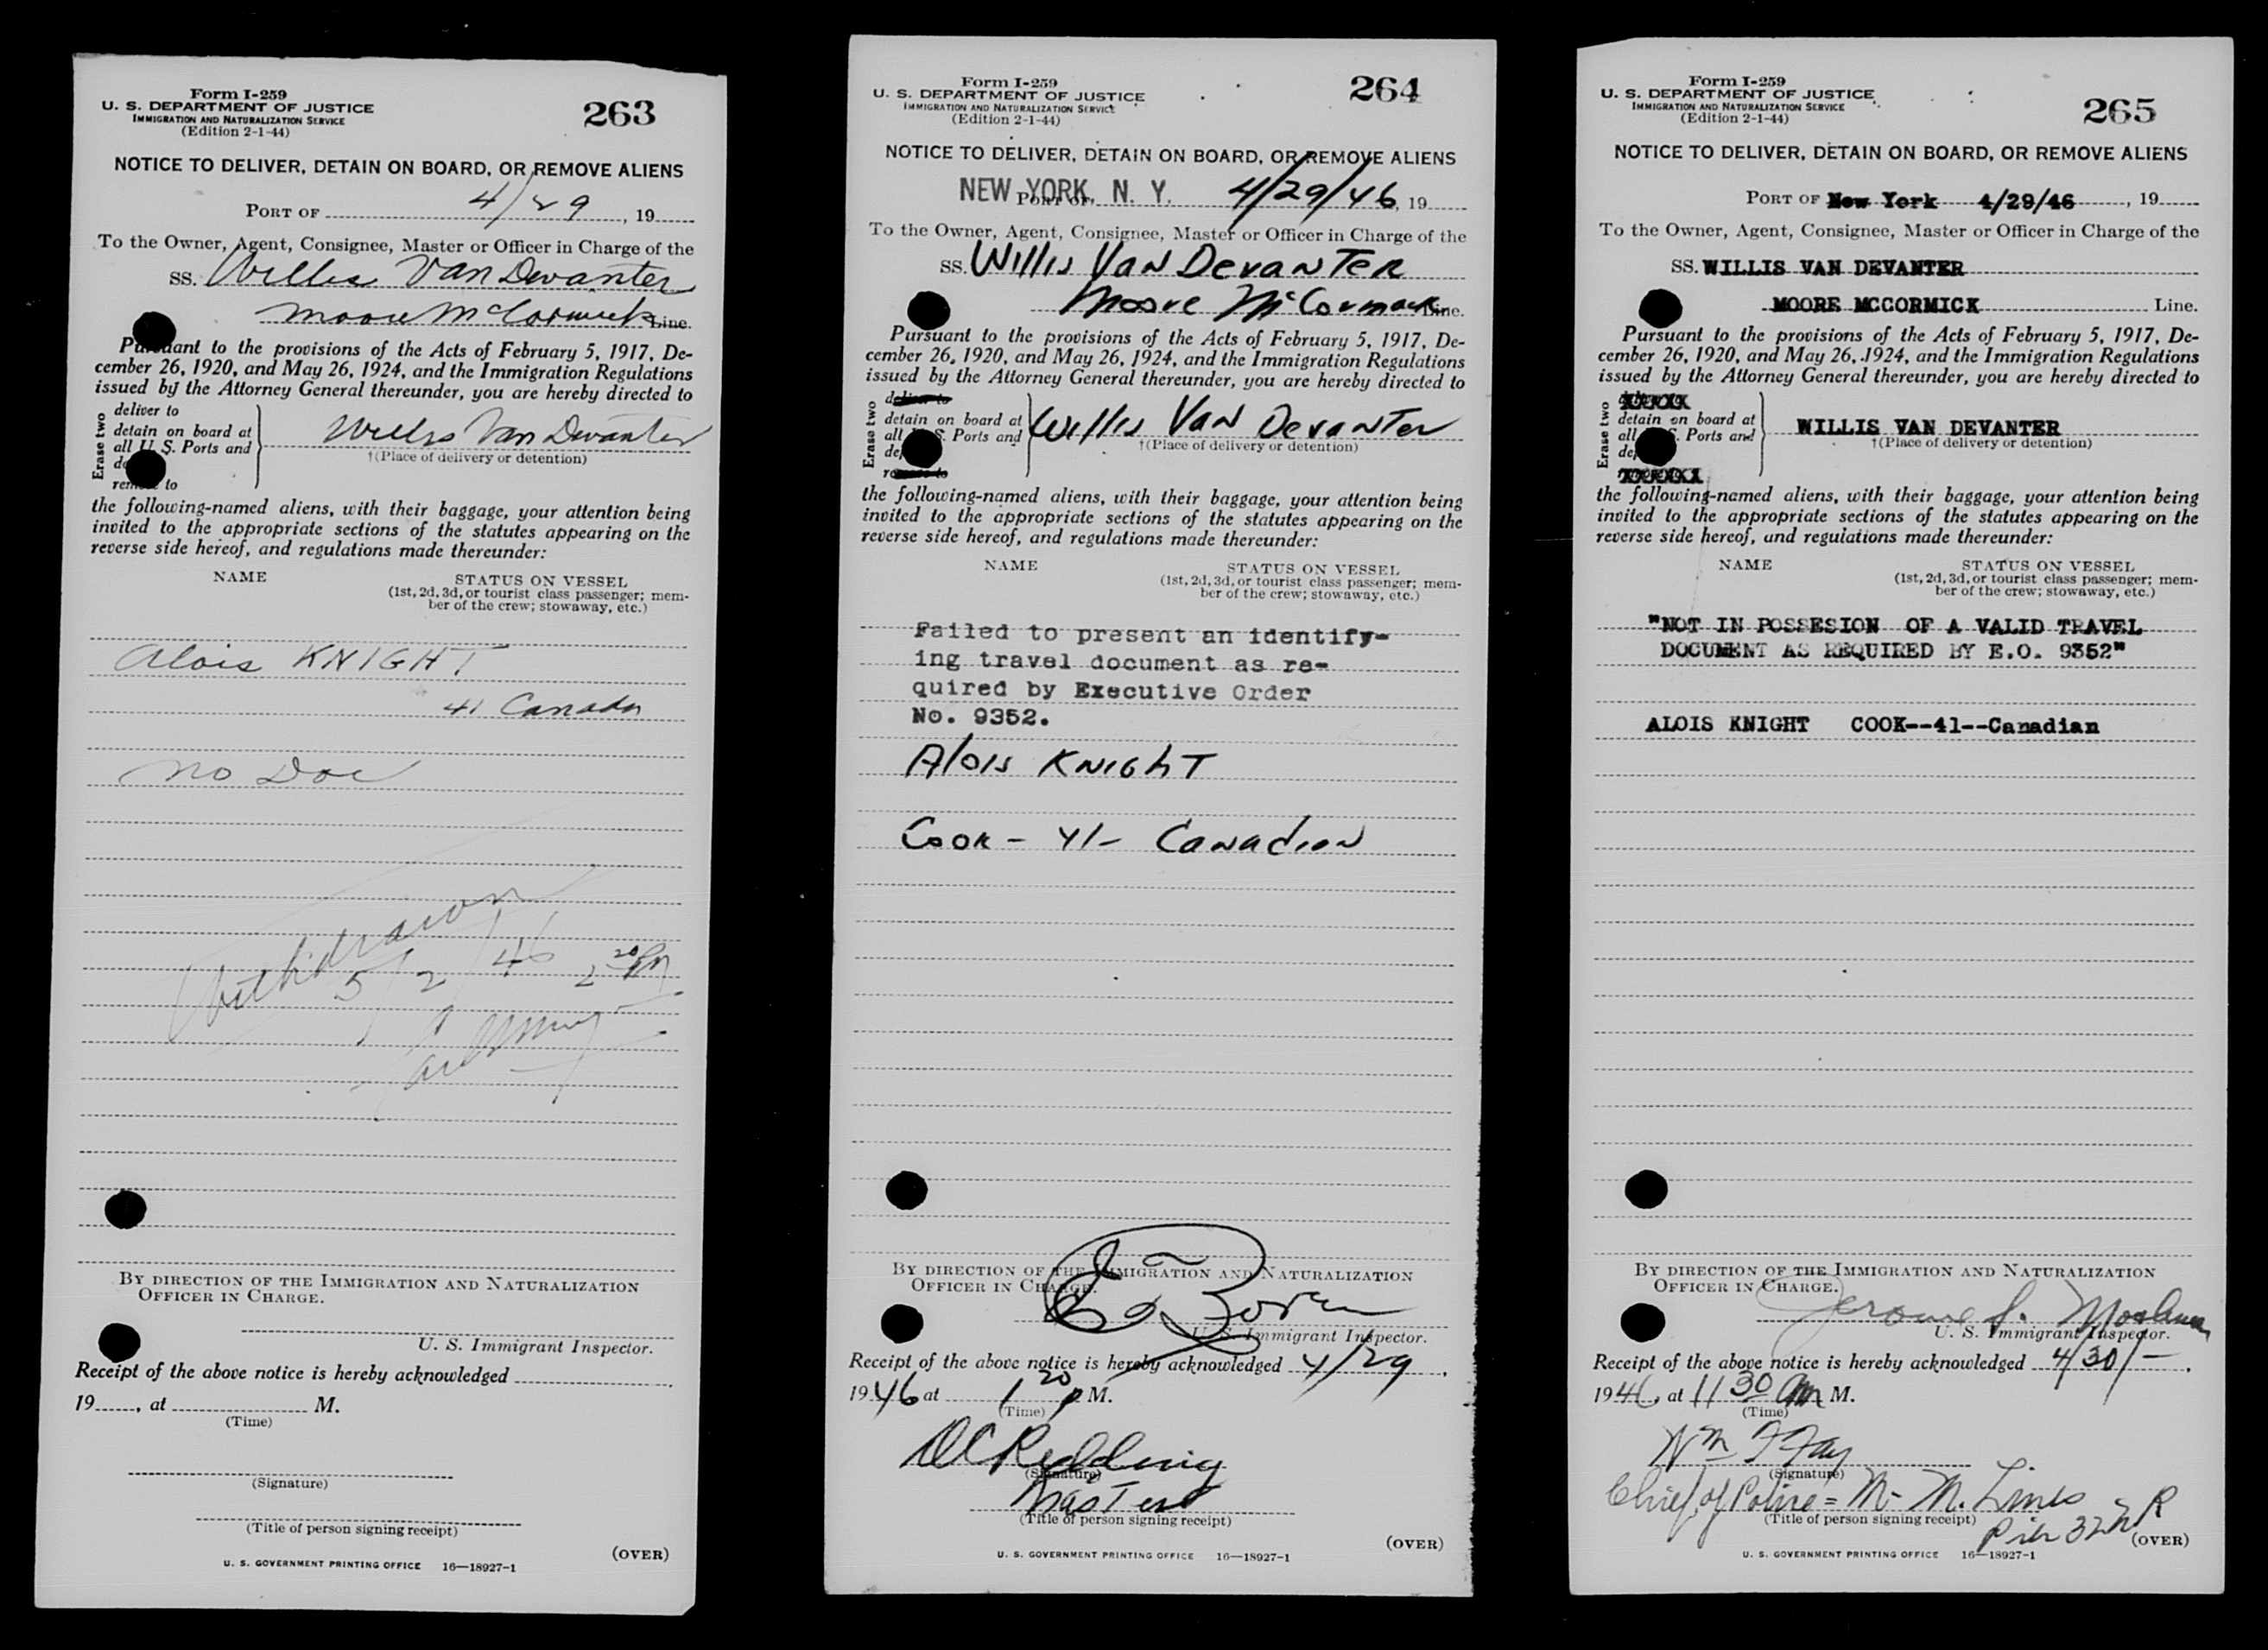 Form I-259
U. S. DEPARTMENT OF JUSTICE
IMMIGRATION AND NATURALIZATION SERVICE
(Edition 2-1-44)
263
NOTICE TO DELIVER, DETAIN ON BOARD, OR REMOVE ALIENS
PORT OF 4/29, 19
To the Owner, Agent, Consignee, Master or Officer in Charge of the
SS. Willis Van Devanter
Moore McCormick Line.
Pursuant to the provisions of the Acts of February 5, 1917, De-
cember 26, 1920, and May 26, 1924, and the Immigration Regulations
issued by the Attorney General thereunder, you are hereby directed to
Erase two
deliver to
detain on board at
all U. S. Ports and
de
remove to
Willis Van Devanter
†(Place of delivery or detention)
the following-named aliens, with their baggage, your attention being
invited to the appropriate sections of the statutes appearing on the
reverse side hereof, and regulations made thereunder:
NAME
STATUS ON VESSEL
(1st, 2d, 3d, or tourist class passenger; mem-
ber of the crew; stowaway, etc.)
Alois KNIGHT
41 Canada
No Doc
Withdrawn
5/2/46 2 20 PM
BY DIRECTION OF THE IMMIGRATION AND NATURALIZATION
OFFICER IN CHARGE.
U. S. Immigrant Inspector.
Receipt of the above notice is hereby acknowledged
19, at M.
(Time)
(Signature)
(Title of person signing receipt)
(OVER)
U. S. GOVERNMENT PRINTING OFFICE 16—18927-1
Form I-259
U. S. DEPARTMENT OF JUSTICE
IMMIGRATION AND NATURALIZATION SERVICE
(Edition 2-1-44)
264
NOTICE TO DELIVER, DETAIN ON BOARD, OR REMOVE ALIENS
NEW YORK, N. Y. 4/29/46, 19
PORT OF
To the Owner, Agent, Consignee, Master or Officer in Charge of the
SS. Willis Van Devanter
Moore McCormack Line.
Pursuant to the provisions of the Acts of February 5, 1917, De-
cember 26, 1920, and May 26, 1924, and the Immigration Regulations
issued by the Attorney General thereunder, you are hereby directed to
Erase two
deliver to
detain on board at
all U. S. Ports and
de
remove to
Willis Van Devanter
†(Place of delivery or detention)
the following-named aliens, with their baggage, your attention being
invited to the appropriate sections of the statutes appearing on the
reverse side hereof, and regulations made thereunder:
NAME
STATUS ON VESSEL
(1st, 2d, 3d, or tourist class passenger; mem-
ber of the crew; stowaway, etc.)
Failed to present an identify-
ing travel document as re-
quired by Executive Order
No. 9352.
Alois Knight
Cook - 41 - Canadian
BY DIRECTION OF THE IMMIGRATION AND NATURALIZATION
OFFICER IN CHARGE.
U. S. Immigrant Inspector.
Receipt of the above notice is hereby acknowledged 4/29,
1946 at 1 20 P M.
(Time)
Redding
(Signature)
Master
(Title of person signing receipt)
(OVER)
U. S. GOVERNMENT PRINTING OFFICE 16—18927-1
Form I-259
U. S. DEPARTMENT OF JUSTICE
IMMIGRATION AND NATURALIZATION SERVICE
(Edition 2-1-44)
265
NOTICE TO DELIVER, DETAIN ON BOARD, OR REMOVE ALIENS
PORT OF New York 4/29/46, 19
To the Owner, Agent, Consignee, Master or Officer in Charge of the
SS. WILLIS VAN DEVANTER
MOORE MCCORMICK Line.
Pursuant to the provisions of the Acts of February 5, 1917, De-
cember 26, 1920, and May 26, 1924, and the Immigration Regulations
issued by the Attorney General thereunder, you are hereby directed to
Erase two
XXXXX
detain on board at
all S. Ports and
de
XXXXXX
WILLIS VAN DEVANTER
†(Place of delivery or detention)
the following-named aliens, with their baggage, your attention being
invited to the appropriate sections of the statutes appearing on the
reverse side hereof, and regulations made thereunder:
NAME
STATUS ON VESSEL
(1st, 2d, 3d, or tourist class passenger; mem-
ber of the crew; stowaway, etc.)
"NOT IN POSSESION OF A VALID TRAVEL
DOCUMENT AS REQUIRED BY E.O. 9352"
ALOIS KNIGHT COOK--41--Canadian
BY DIRECTION OF THE IMMIGRATION AND NATURALIZATION
OFFICER IN CHARGE.
Jerome
U. S. Immigrant Inspector.
Receipt of the above notice is hereby acknowledged 4/30/-,
1946, at 11 30 am M.
(Time)
Wm F Fay
(Signature)
Chief of Police = M- M. Lines
Pier 32 N R
(Title of person signing receipt)
(OVER)
U. S. GOVERNMENT PRINTING OFFICE 16—18927-1